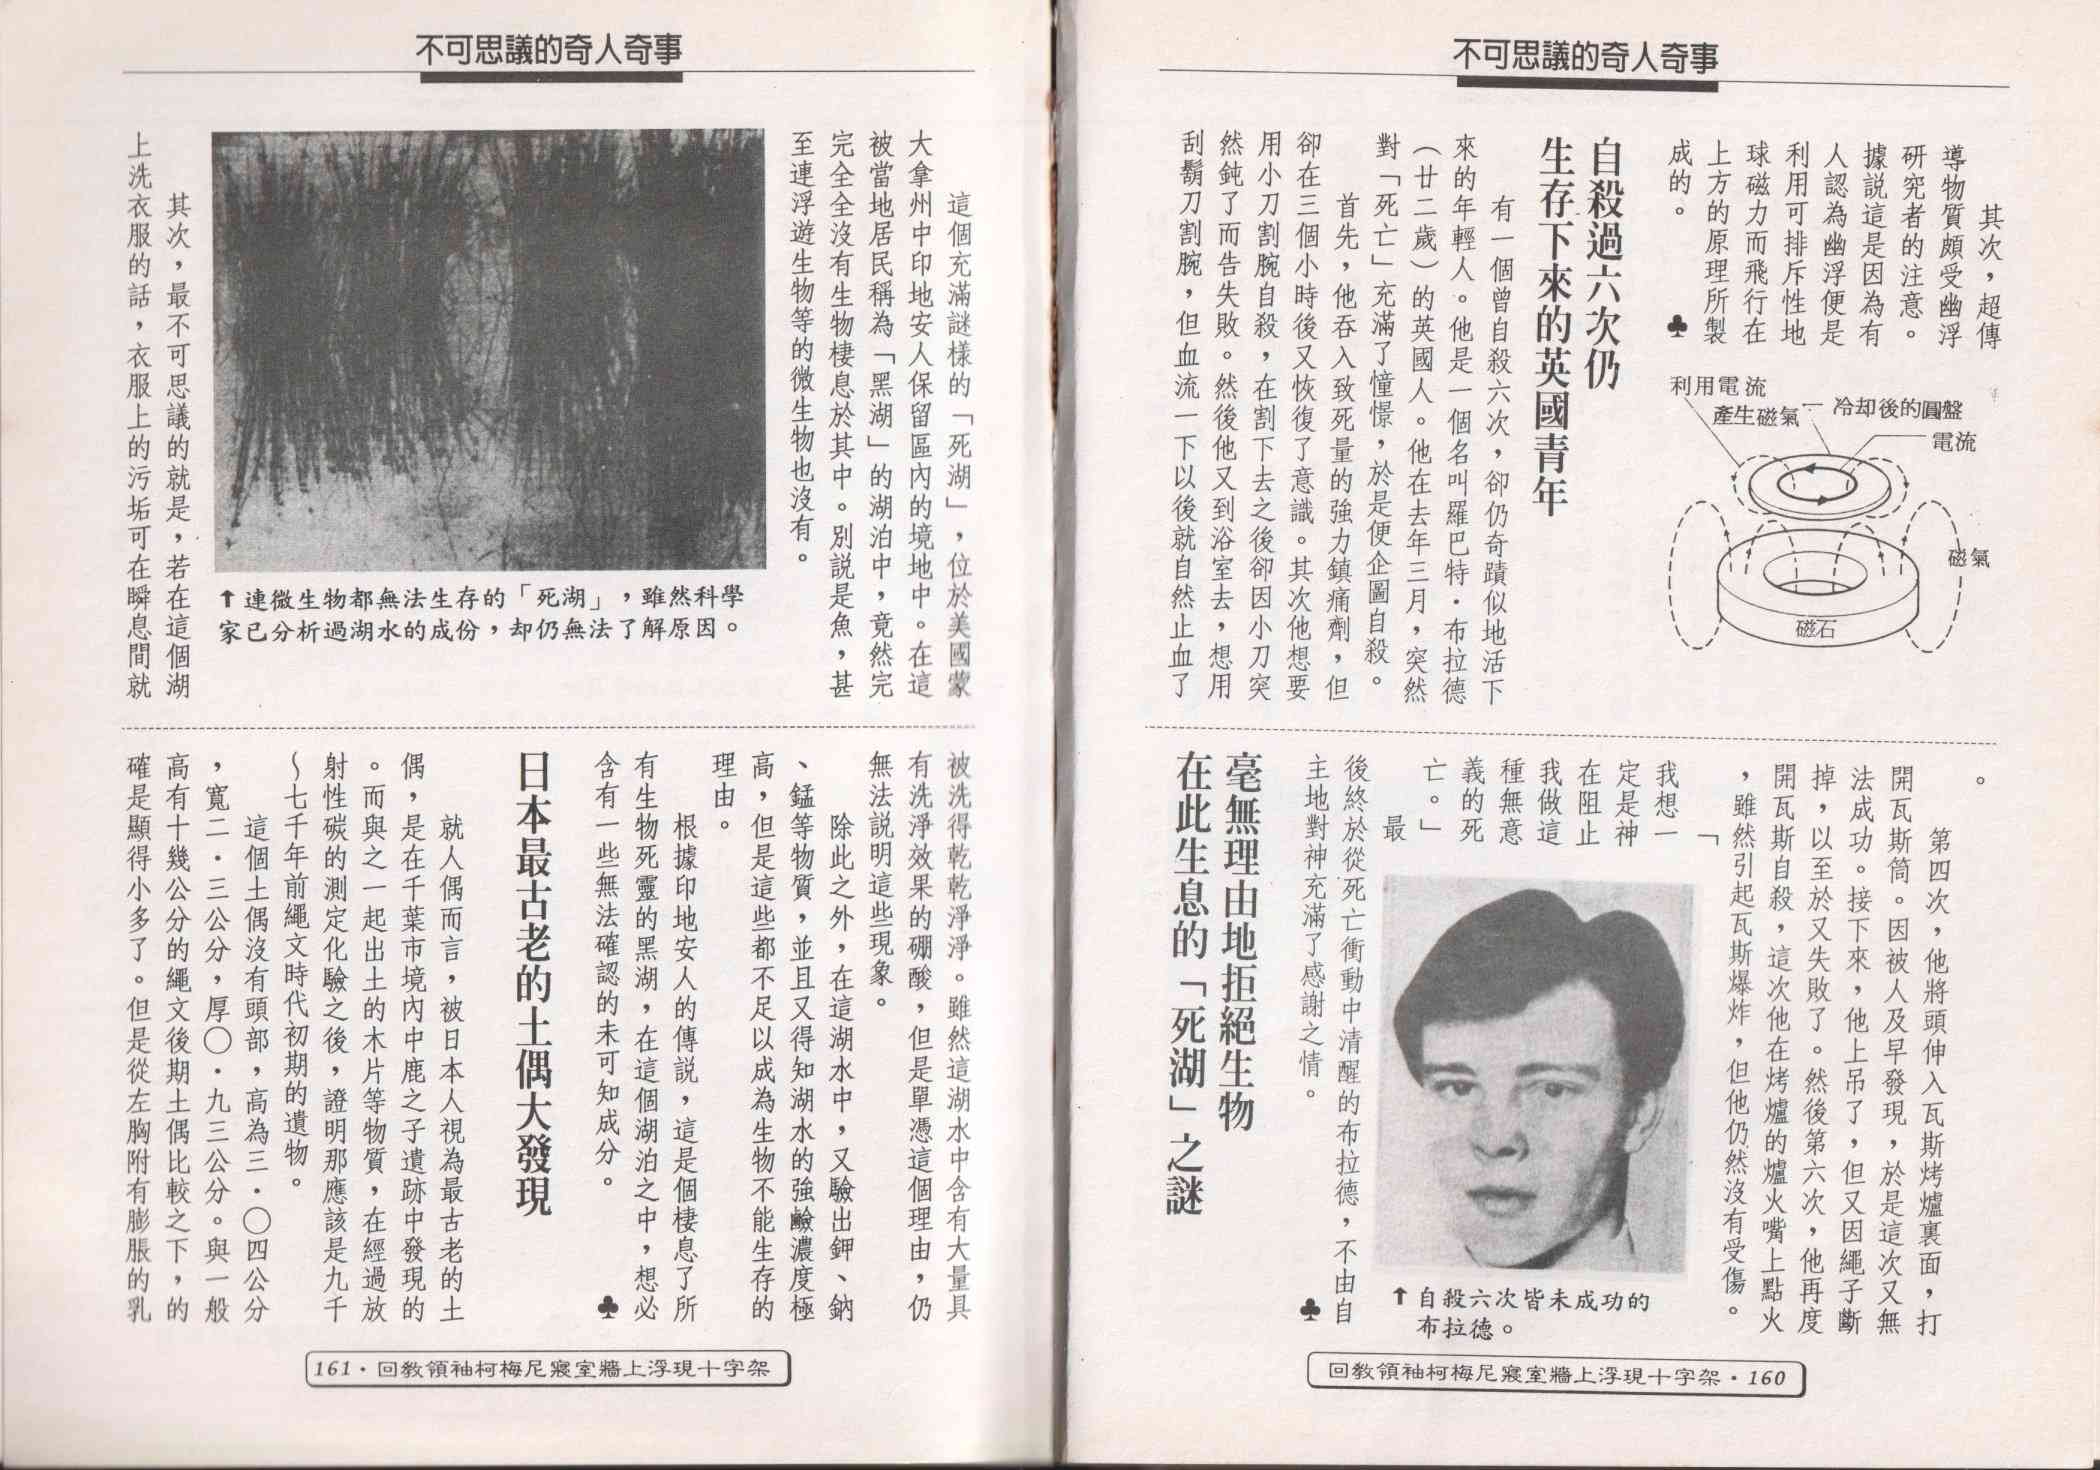 不可思議的奇人奇事
其次，超傳
導物質頗受幽浮
研究者的注意。
據說這是因為有
人認為幽浮便是
利用可排斥性地
球磁力而飛行在
上方的原理所製
成的。
♣
利用電流
產生磁氣
冷却後的圓盤
電流
磁氣
磁石
自殺過六次仍
生存下來的英國青年
有一個曾自殺六次，卻仍奇蹟似地活下
來的年輕人。他是一個名叫羅巴特・布拉德
（廿二歲）的英國人。他在去年三月，突然
對「死亡」充滿了憧憬，於是便企圖自殺。
首先，他吞入致死量的強力鎮痛劑，但
卻在三個小時後又恢復了意識。其次他想要
用小刀割腕自殺，在割下去之後卻因小刀突
然鈍了而告失敗。然後他又到浴室去，想用
刮鬍刀割腕，但血流一下以後就自然止血了
。
第四次，他將頭伸入瓦斯烤爐裏面，打
開瓦斯筒。因被人及早發現，於是這次又無
法成功。接下來，他上吊了，但又因繩子斷
掉，以至於又失敗了。然後第六次，他再度
開瓦斯自殺，這次他在烤爐的爐火嘴上點火
，雖然引起瓦斯爆炸，但他仍然沒有受傷。
「
我想一
定是神
在阻止
我做這
種無意
義的死
亡。」
最
後終於從死亡衝動中清醒的布拉德，不由自
主地對神充滿了感謝之情。
♣
⬆自殺六次皆未成功的
布拉德。
毫無理由地拒絕生物
在此生息的「死湖」之謎
回教領袖柯梅尼寢室牆上浮現十字架・160
不可思議的奇人奇事
這個充滿謎樣的「死湖」，位於美國蒙
大拿州中印地安人保留區內的境地中。在這
被當地居民稱為「黑湖」的湖泊中，竟然完
完全全沒有生物棲息於其中。別說是魚，甚
至連浮遊生物等的微生物也沒有。
⬆連微生物都無法生存的「死湖」，雖然科學
家已分析過湖水的成份，却仍無法了解原因。
其次，最不可思議的就是，若在這個湖
上洗衣服的話，衣服上的污垢可在瞬息間就
被洗得乾乾淨淨。雖然這湖水中含有大量具
有洗淨效果的硼酸，但是單憑這個理由，仍
無法說明這些現象。
除此之外，在這湖水中，又驗出鉀、鈉
、錳等物質，並且又得知湖水的強鹼濃度極
高，但是這些都不足以成為生物不能生存的
理由。
根據印地安人的傳說，這是個棲息了所
有生物死靈的黑湖，在這個湖泊之中，想必
含有一些無法確認的未可知成分。
♣
日本最古老的土偶大發現
就人偶而言，被日本人視為最古老的土
偶，是在千葉市境內中鹿之子遺跡中發現的
。而與之一起出土的木片等物質，在經過放
射性碳的測定化驗之後，證明那應該是九千
～七千年前繩文時代初期的遺物。
這個土偶沒有頭部，高為三・〇四公分
，寬二・三公分，厚〇・九三公分。與一般
高有十幾公分的繩文後期土偶比較之下，的
確是顯得小多了。但是從左胸附有膨脹的乳
161・回教領袖柯梅尼寢室牆上浮現十字架